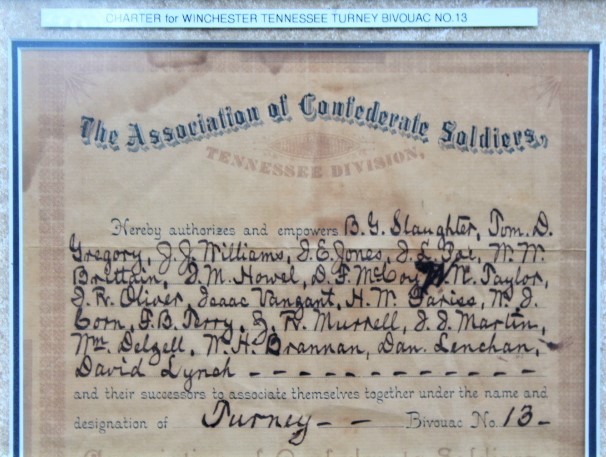 CHARTER for WINCHESTER TENNESSEE TURNEY BIVOUAC NO.13
The Association of Confederate Soldiers,
TENNESSEE DIVISION,
Hereby authorizes and empowers B. G. Slaughter, Tom. D.
Gregory, J. J. Williams, J. E. Jones, J. L. W. W.
Brittain, J. M. Howel, D. F. McCoy, Taylor,
J. R. Oliver, Isaac Vanzant, H. W. W. J.
Corn, F. B. Terry, J. R. Murrell, J. J. Martin,
Wm. Delzell, W. H. Brannan, Dan. Lenehan,
David Lynch - - - - - - - - - - - - -
and their successors to associate themselves together under the name and
designation of Turney - - Bivouac No. 13 -